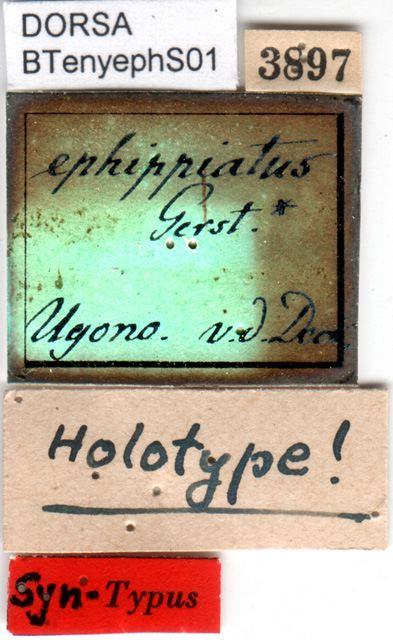 DORSA
BTenyephS01
3897
ephippiatus
Gerst.*
Ugono. v. d. Deck.
Holotype!
Syn-Typus